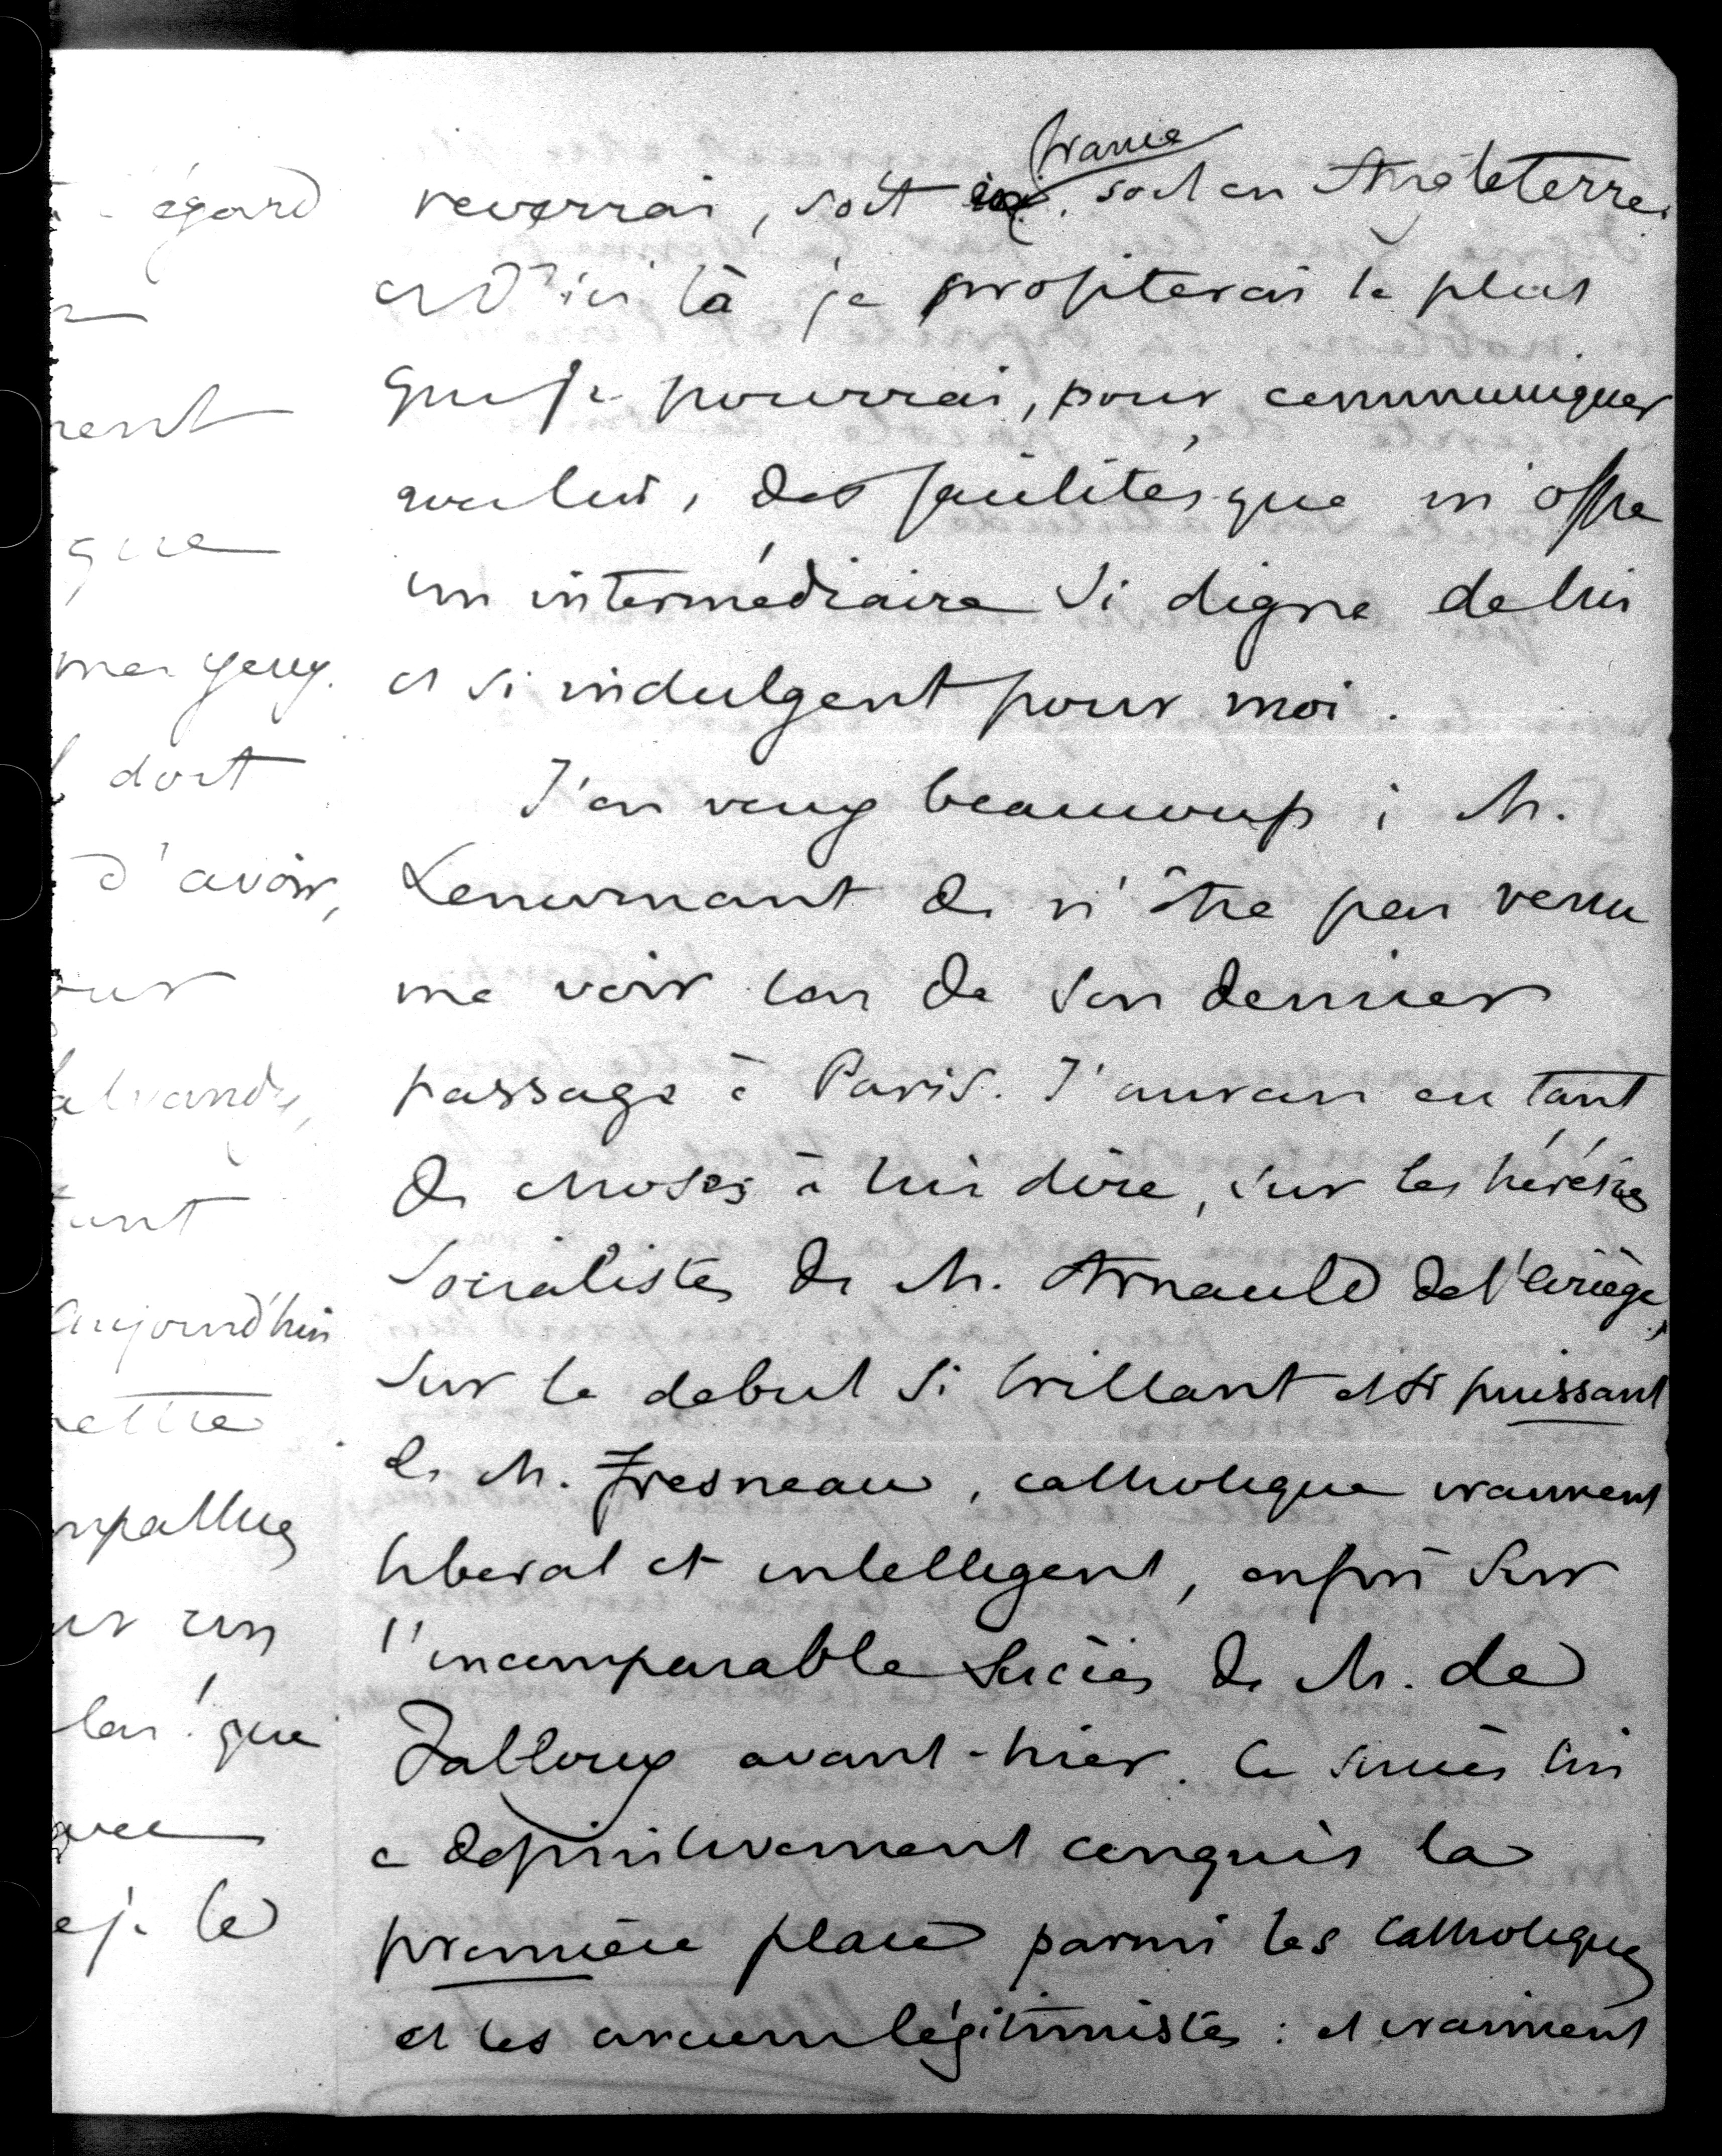 égard
nent
que
mes yeux.
dont
d'avoir,
our
alvandy,
tant
Aujourd'hui
ettre
mpathie
ur un
las ! que
avec
je le
france
reverrai, soit ici, soit en Angleterre.
et d'ici là je profiterai le plus
que je pourrai, pour communiquer
avec lui, des facilités que m'offre
un intermédiaire si digne de lui
et si indulgent pour moi.
J'en veux beaucoup à M.
Lenormant de n'être pas venu
me voir lors de son dernier
passage à Paris. J'aurais eu tant
de choses à lui dire, sur les hérésies
socialistes de M. Arnauld de l'Ariège,
sur le debut si brillant et si puissant
de M. Fresneau, catholique vraiment
liberal et intelligent, enfin sur
l'incomparable succès de M. de
Falloux avant-hier. Ce succès lui
a definitivement conquis la
première place parmi les catholiques
et les anciens légitimistes : et vraiment